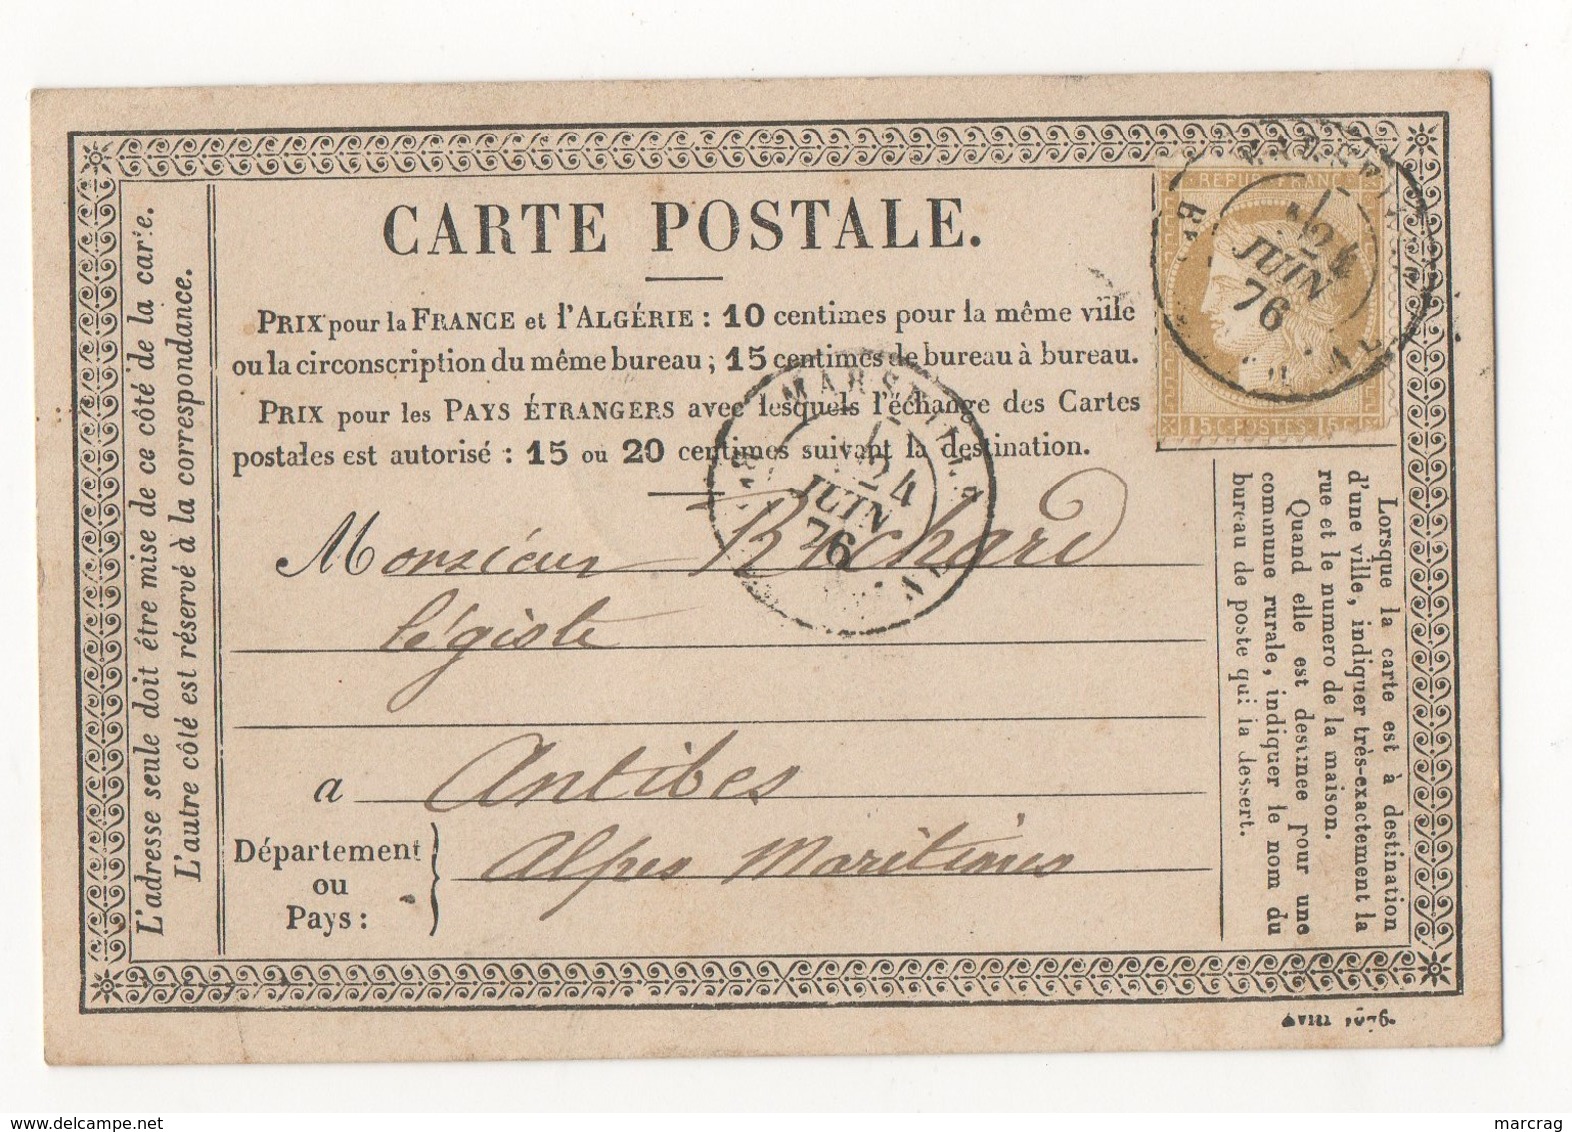 CARTE POSTALE.
PRIX pour la FRANCE et l'ALGÉRIE : 10 centimes pour la même ville
ou la circonscription du même bureau ; 15 centimes de bureau à bureau.
PRIX pour les PAYS ÉTRANGERS avec lesquels l'échange des Cartes
postales est autorisé : 15 ou 20 centimes suivant la destination.
REPUB FRANC
24
JUIN
76
15 C POSTES 15 C
MARSEILLE
24
JUIN
76
Monsieur Richard
légiste
a Antibes
Département
ou
Pays :
Alpes Maritimes
L'adresse seule doit être mise de ce côté de la carte.
L'autre côté est réservé à la correspondance.
Lorsque la carte est à destination
d'une ville, indiquer très-exactement la
rue et le numero de la maison.
Quand elle est destinée pour une
commune rurale, indiquer le nom du
bureau de poste qui la dessert.
Avril 1876.
delcampe.net
marcrag